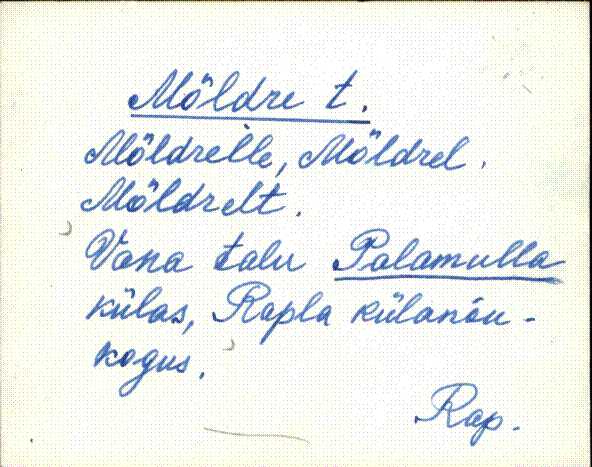 Möldre t.
Möldrèlle, Möldrel.
Möldrelt.
Vana talu Palamulla
külas, Rapla külanõu-
kogus.
Rap.